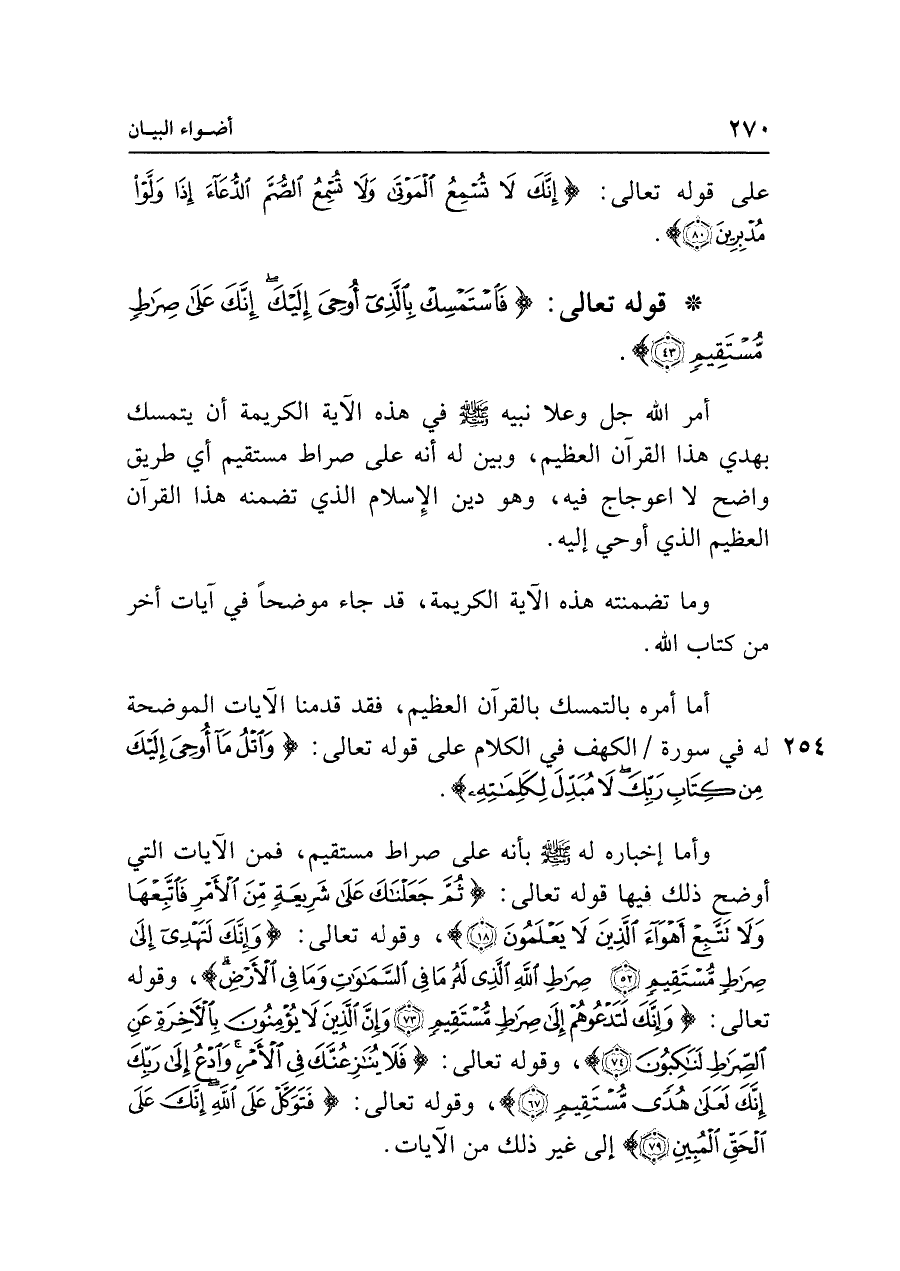 ٢٧٠ أضواء البيان
على قوله تعالى: ﴿ إِنَّكَ لَا تُسْمِعُ الْمَوْتَىٰ وَلَا تُسْمِعُ الصُّمَّ الدُّعَآءَ إِذَا وَلَّوْا۟
مُدْبِرِينَ ٨٠﴾ .
* قوله تعالى: ﴿ فَاسْتَمْسِكْ بِالَّذِىٓ أُوحِىَ إِلَيْكَ ۖ إِنَّكَ عَلَىٰ صِرَٰطٍ
مُّسْتَقِيمٍ ٤٣﴾ .
أمر الله جل وعلا نبيه ﷺ في هذه الآية الكريمة أن يتمسك
بهدي هذا القرآن العظيم، وبين له أنه على صراط مستقيم أي طريق
واضح لا اعوجاج فيه، وهو دين الإسلام الذي تضمنه هذا القرآن
العظيم الذي أوحي إليه.
وما تضمنته هذه الآية الكريمة، قد جاء موضحاً في آيات أخر
من كتاب الله.
أما أمره بالتمسك بالقرآن العظيم، فقد قدمنا الآيات الموضحة
٢٥٤ له في سورة / الكهف في الكلام على قوله تعالى: ﴿ وَاتْلُ مَآ أُوحِىَ إِلَيْكَ
مِن كِتَابِ رَبِّكَ ۖ لَا مُبَدِّلَ لِكَلِمَٰتِهِۦ ﴾ .
وأما إخباره له ﷺ بأنه على صراط مستقيم، فمن الآيات التي
أوضح ذلك فيها قوله تعالى: ﴿ ثُمَّ جَعَلْنَٰكَ عَلَىٰ شَرِيعَةٍ مِّنَ الْأَمْرِ فَاتَّبِعْهَا
وَلَا تَتَّبِعْ أَهْوَآءَ الَّذِينَ لَا يَعْلَمُونَ ١٨﴾، وقوله تعالى: ﴿ وَإِنَّكَ لَتَهْدِىٓ إِلَىٰ
صِرَٰطٍ مُّسْتَقِيمٍ ٥٢ صِرَٰطِ اللَّهِ الَّذِى لَهُۥ مَا فِى السَّمَٰوَٰتِ وَمَا فِى الْأَرْضِ ۗ ﴾، وقوله
تعالى: ﴿ وَإِنَّكَ لَتَدْعُوهُمْ إِلَىٰ صِرَٰطٍ مُّسْتَقِيمٍ ٧٣ وَإِنَّ الَّذِينَ لَا يُؤْمِنُونَ بِالْآخِرَةِ عَنِ
الصِّرَٰطِ لَنَٰكِبُونَ ٧٤﴾، وقوله تعالى: ﴿ فَلَا يُنَٰزِعُنَّكَ فِى الْأَمْرِ ۚ وَادْعُ إِلَىٰ رَبِّكَ
إِنَّكَ لَعَلَىٰ هُدًى مُّسْتَقِيمٍ ٦٧﴾، وقوله تعالى: ﴿ فَتَوَكَّلْ عَلَى اللَّهِ ۖ إِنَّكَ عَلَى
الْحَقِّ الْمُبِينِ ٧٩﴾ إلى غير ذلك من الآيات.